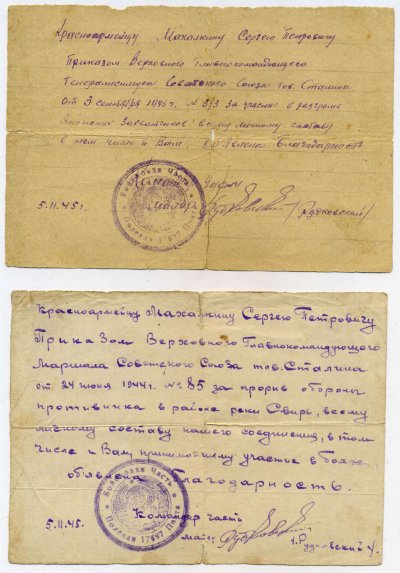 Красноармейцу Махалкину Сергею Петровичу
Приказом Верховного Главнокомандующего
Генералиссимуса Советского Союза тов. Сталина
от 3 сентября 1945 г. № 373 за участие в разгроме
Японских Захватчиков всему личному составу
в том числе и Вам объявлена Благодарность
Командир части
Войсковая Часть
Полевая Почта 17697
5.11.45г. майор /Рудковский/
Красноармейцу Махалкину Сергею Петровичу
Приказом Верховного Главнокомандующего
Маршала Советского Союза тов. Сталина
от 24 июня 1944г. №85 за прорыв обороны
противника в районе реки Свирь, всему
личному составу нашего соединения, в том
числе и Вам, принимавшему участие в боях
объявлена благодарность.
Войсковая Часть
Полевая Почта 17697
Командир части
5.11.45г. майор Рудковский